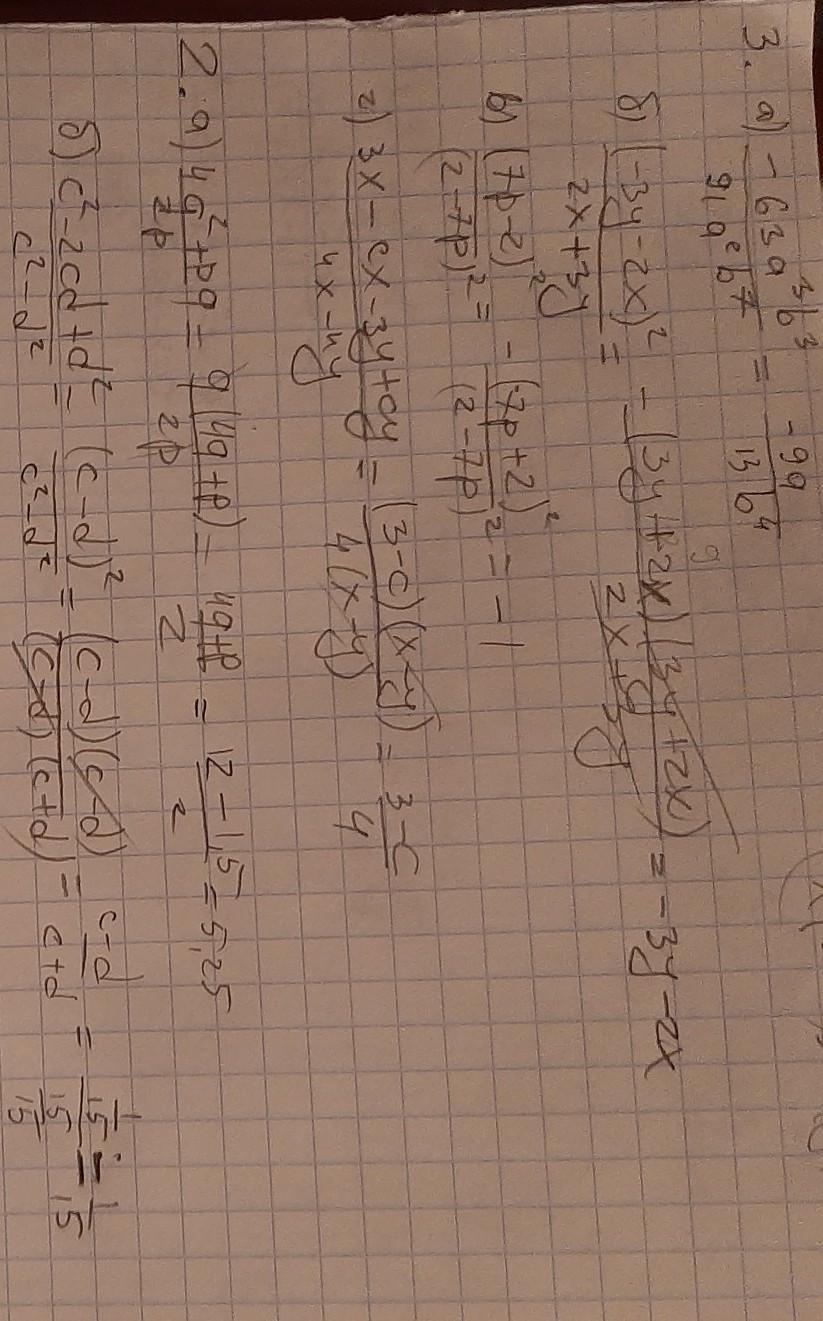 3. а) -63a³b³ / 91a²b⁷ = -9a / 13b⁴
б) (-3y-2x)² / 2x+3y = -(3y+2x)(3y+2x) / 2x+3y = -3y-2x
в) (7p-2)² / (2-7p)² = -(7p+2)² / (2-7p)² = -1
г) 3x-cx-3y+cy / 4x-4y = (3-c)(x-y) / 4(x-y) = 3-c / 4
2. а) 4q²+pq / 2p = q(4q+p) / 2p = 4q+p / 2 = 12-1,5 / 2 = 5,25
б) c²-2cd+d² / c²-d² = (c-d)² / c²-d² = (c-d)(c-d) / (c-d)(c+d) = c-d / c+d =